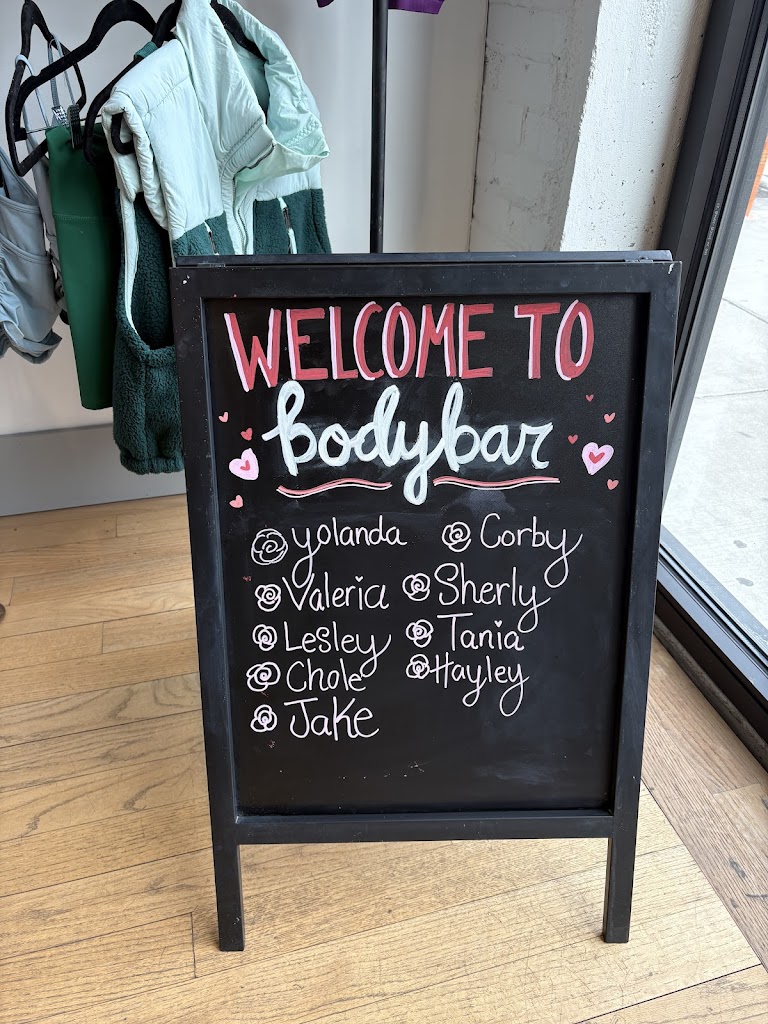 WELCOME TO
bodybar
yolanda
Corby
Valeria
Sherly
Lesley
Tania
Chole
Hayley
Jake